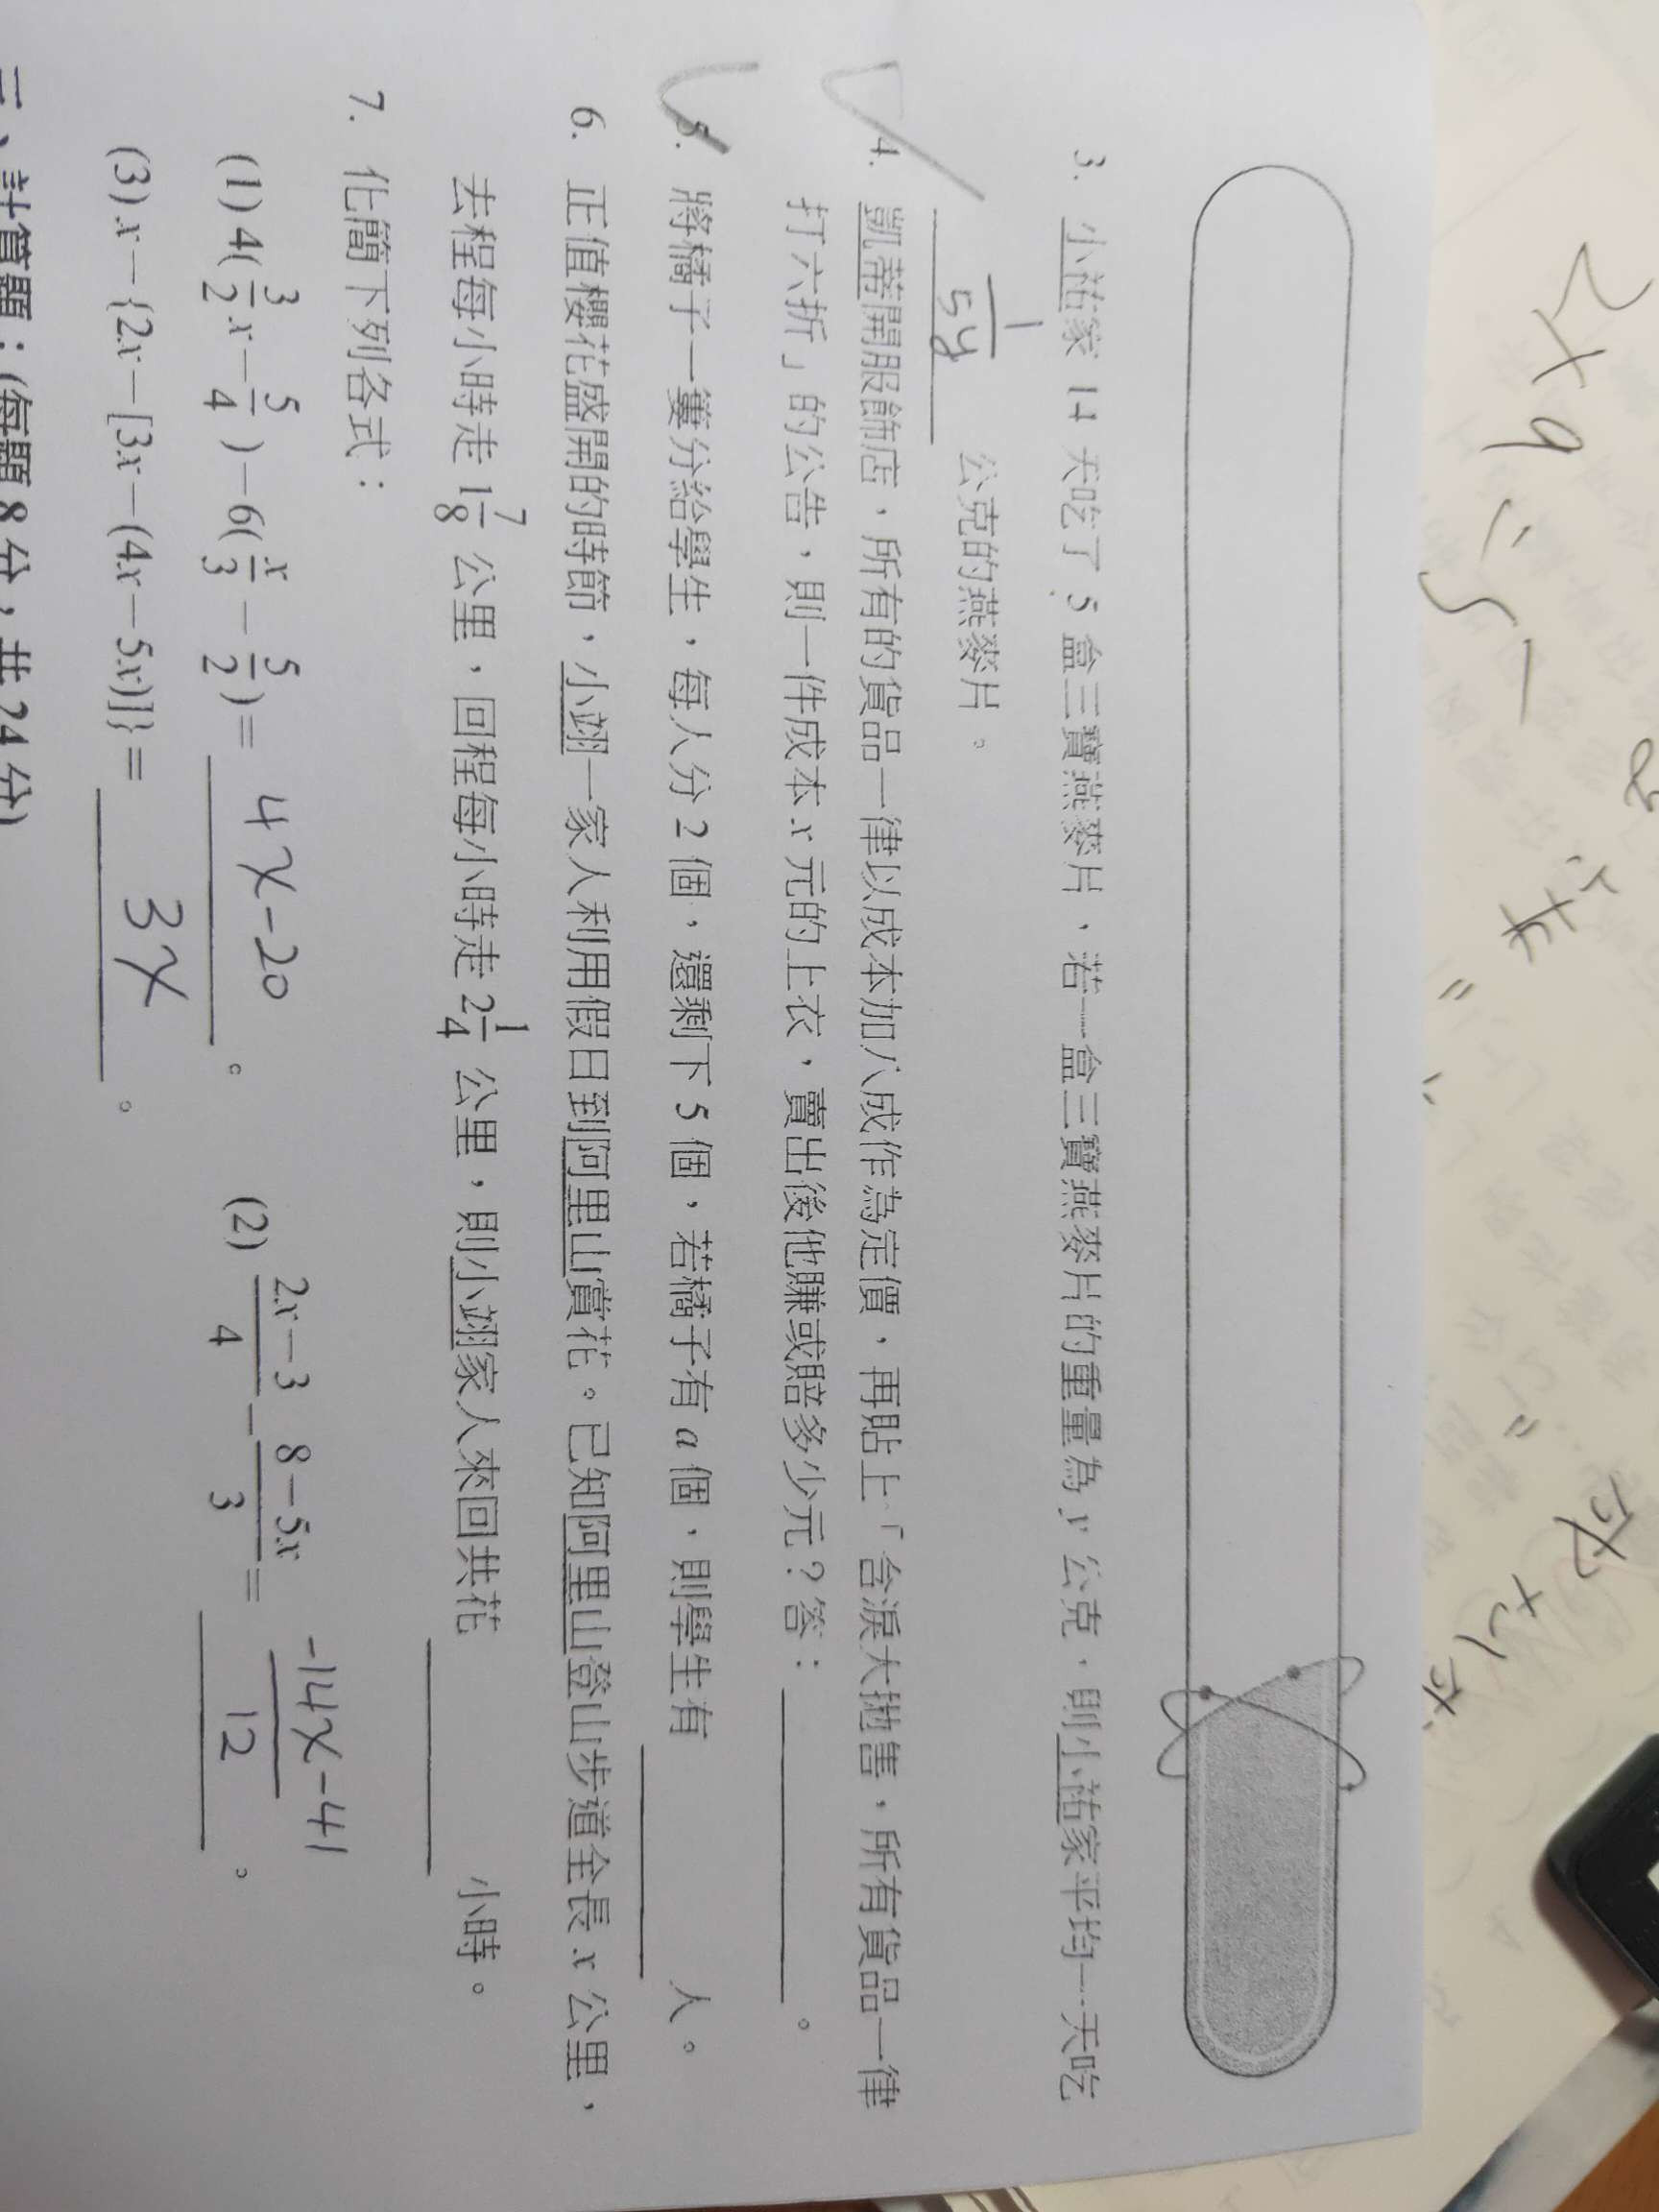 3. 小祐家 14 天吃了 5 盒三寶燕麥片，若一盒三寶燕麥片的重量為 y 公克，則小祐家平均一天吃
1/5y 公克的燕麥片。
4. 凱蒂開服飾店，所有的貨品一律以成本加八成作為定價，再貼上「含淚大拋售，所有貨品一律
打六折」的公告，則一件成本 x 元的上衣，賣出後他賺或賠多少元？答：________。
5. 將橘子一簍分給學生，每人分 2 個，還剩下 5 個，若橘子有 a 個，則學生有________人。
6. 正值櫻花盛開的時節，小翊一家人利用假日到阿里山賞花。已知阿里山登山步道全長 x 公里，
去程每小時走 1 7/8 公里，回程每小時走 2 1/4 公里，則小翊家人來回共花________小時。
7. 化簡下列各式：
(1) 4(3/2 x－5/4)－6(x/3－5/2)＝ 4x-20 。 (2) (2x－3)/4－(8－5x)/3＝ (-14x-41)/12 。
(3) x－{2x－[3x－(4x－5x)]}＝ 3x 。
三、計算題：(每題 8 分，共 24 分)